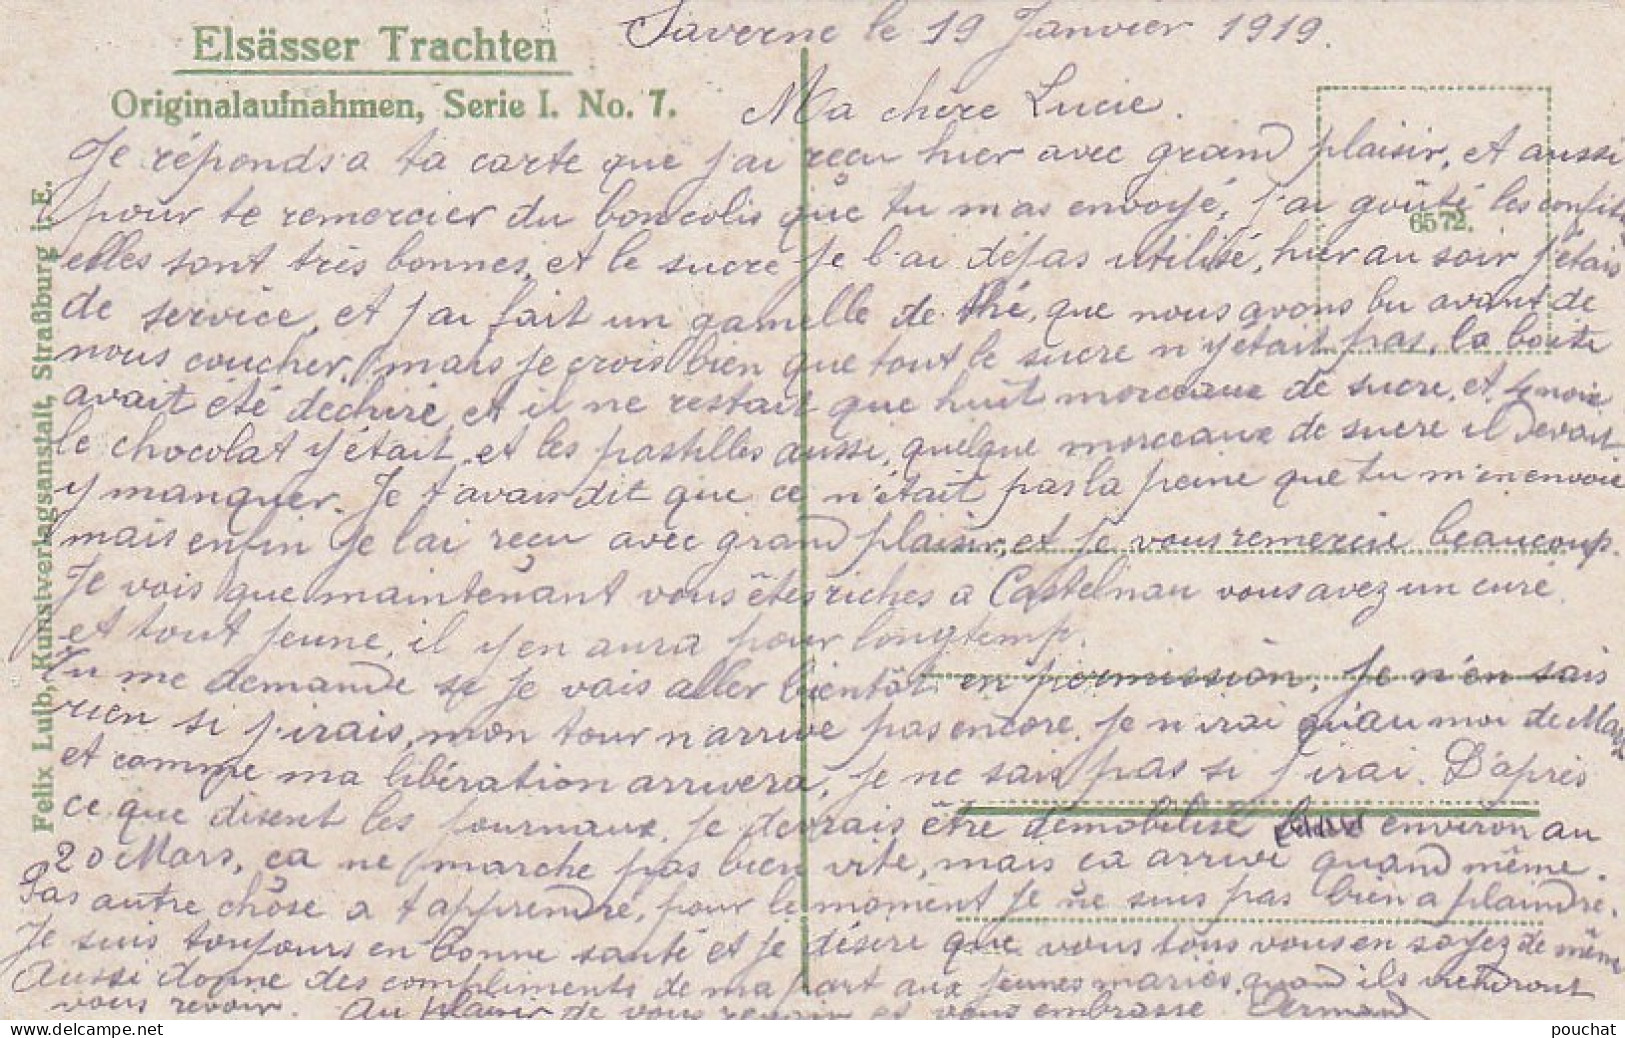 Elsässer Trachten
Originalaufnahmen, Serie I. No. 7.
Felix Luib, Kunstverlagsanstalt, Straßburg i. E.
6572.
Saverne le 19 Janvier 1919.
Ma chère Lucie.
Je réponds a ta carte que j'ai reçu hier avec grand plaisir, et aussi
pour te remercier du bon colis que tu m'as envoyé, j'ai goûté les confit
elles sont très bonnes, et le sucre je l'ai déjas utilisé, hier au soir j'étais
de service, et j'ai fait un gamelle de thé, que nous avons bu avant de
nous coucher, mais je crois bien que tout le sucre n'y était pas, la boite
avait été dechiré, et il ne restait que huit morceaux de sucre, et
le chocolat y était, et les pastilles aussi, quelque morceaux de sucre il devait
y manquer. Je t'avais dit que ce n'était pas la peine que tu m'en envoie
mais enfin je l'ai reçu avec grand plaisir, et je vous remercie beaucoup.
Je vois que maintenant vous êtes riches a Castelnau vous avez un curé
et tout jeune, il y en aura pour longtemp.
Tu me demande si je vais aller bientôt en permission, Je n'en sais
rien si j'irais, mon tour n'arrive pas encore, je n'irai qu'au moi de Mars
et comme ma libération arrivera, je ne sais pas si j'irai. D'après
ce que disent les journaux, je devrais être démobilisé environ au
20 Mars, ca ne marche pas bien vite, mais ca arrive quand même.
Pas autre chose a t'apprendre, pour le moment je ne suis pas bien a plaindre.
Je suis toujours en bonne santé et je désire que vous tous vous en soyez de même
Aussi donne des compliments de ma part aux jeunes mariés, quand ils viendront
vous revoir. Au plaisir de vous revoir et vous embrasse Armand
pouchat
www.delcampe.net